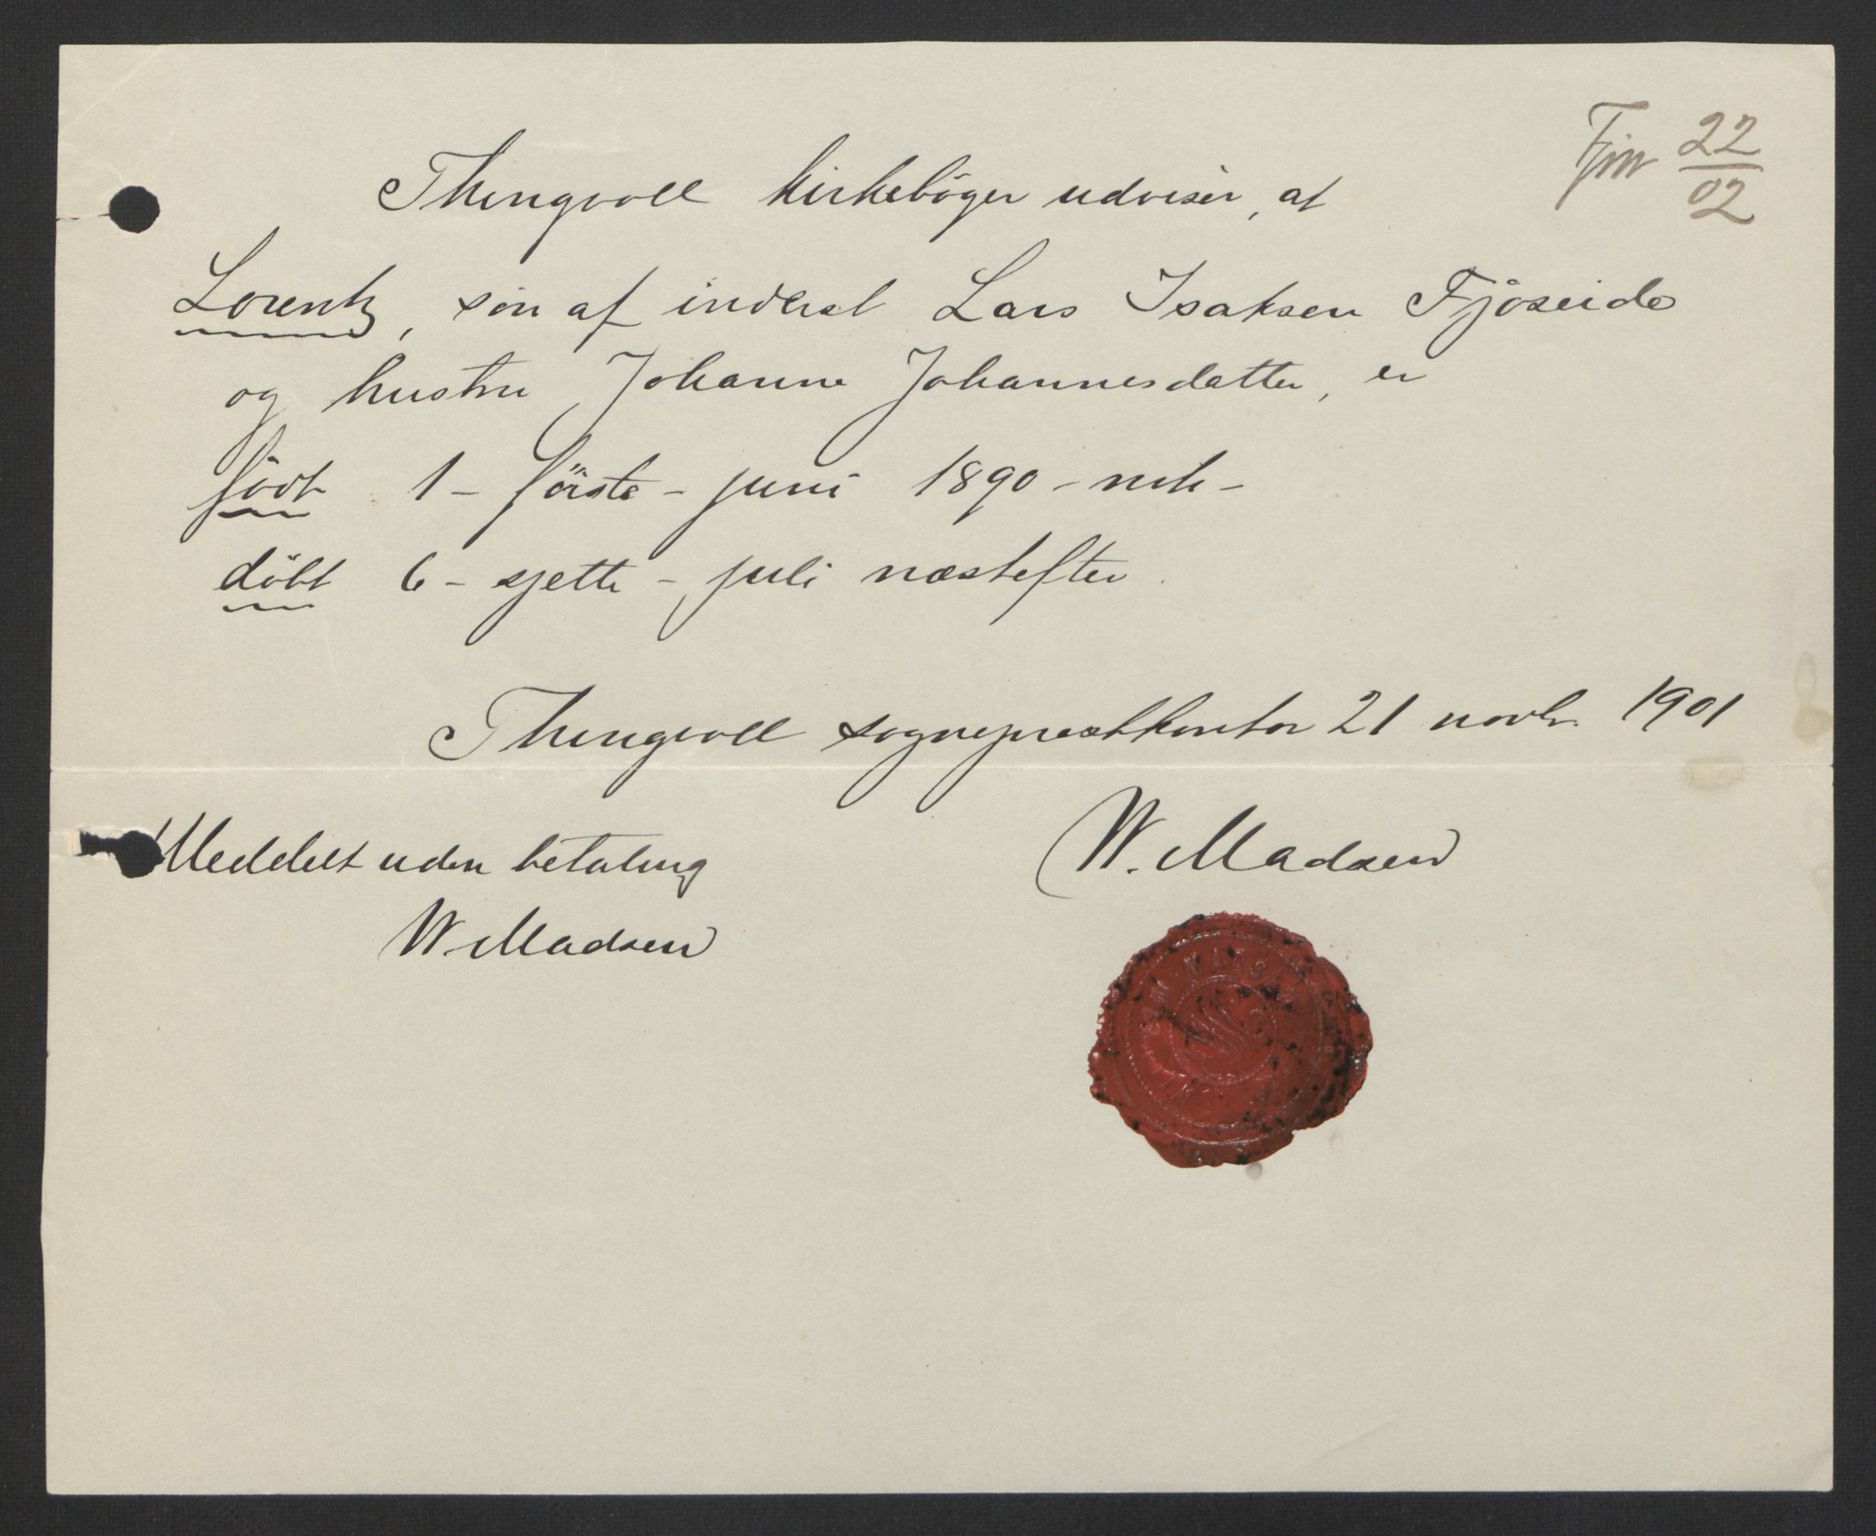 Fjm 22/02
Thingvoll kirkebøger udviser, at
Lorentz, søn af inderst Lars Isaksen Fjøseide
og hustru Johanne Johannesdatter, er
født 1 - første - juni 1890 - nih -
døbt 6 - sjette - juli næstefter.
Thingvoll sogneprestkontor 21 novbr. 1901
W. Madsen
Meddelt uden betaling
W. Madsen